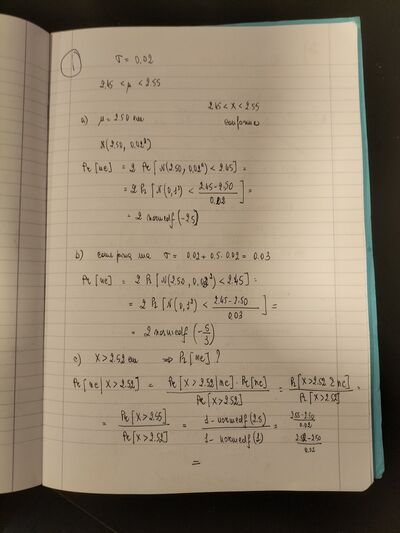 1
σ = 0.02
2.45 < μ < 2.55
2.45 < X < 2.55
conforme
a) μ = 2.50 cm
X(2.50, 0.02²)
Pr [nc] = 2 Pr [N(2.50, 0.02²) < 2.45] =
= 2 Pr [N(0,1²) < (2.45-2.50)/0.02] =
= 2 normcdf(-2.5)
b) conforme ma σ = 0.02 + 0.5 · 0.02 = 0.03
Pr [nc] = 2 Pr [N(2.50, 0.03²) < 2.45] =
= 2 Pr [N(0,1²) < (2.45-2.50)/0.03] =
= 2 normcdf(-5/3)
c) X > 2.52 cm ⇒ Pr [nc] ?
Pr [nc | X > 2.52] = Pr [X > 2.52 | nc] · Pr [nc] / Pr [X > 2.52] = Pr [X > 2.52 e nc] / Pr [X > 2.52] =
= Pr [X > 2.55] / Pr [X > 2.52] = (1 - normcdf(2.5)) / (1 - normcdf(1)) =
(2.55-2.50)/0.02
(2.52-2.50)/0.02
=